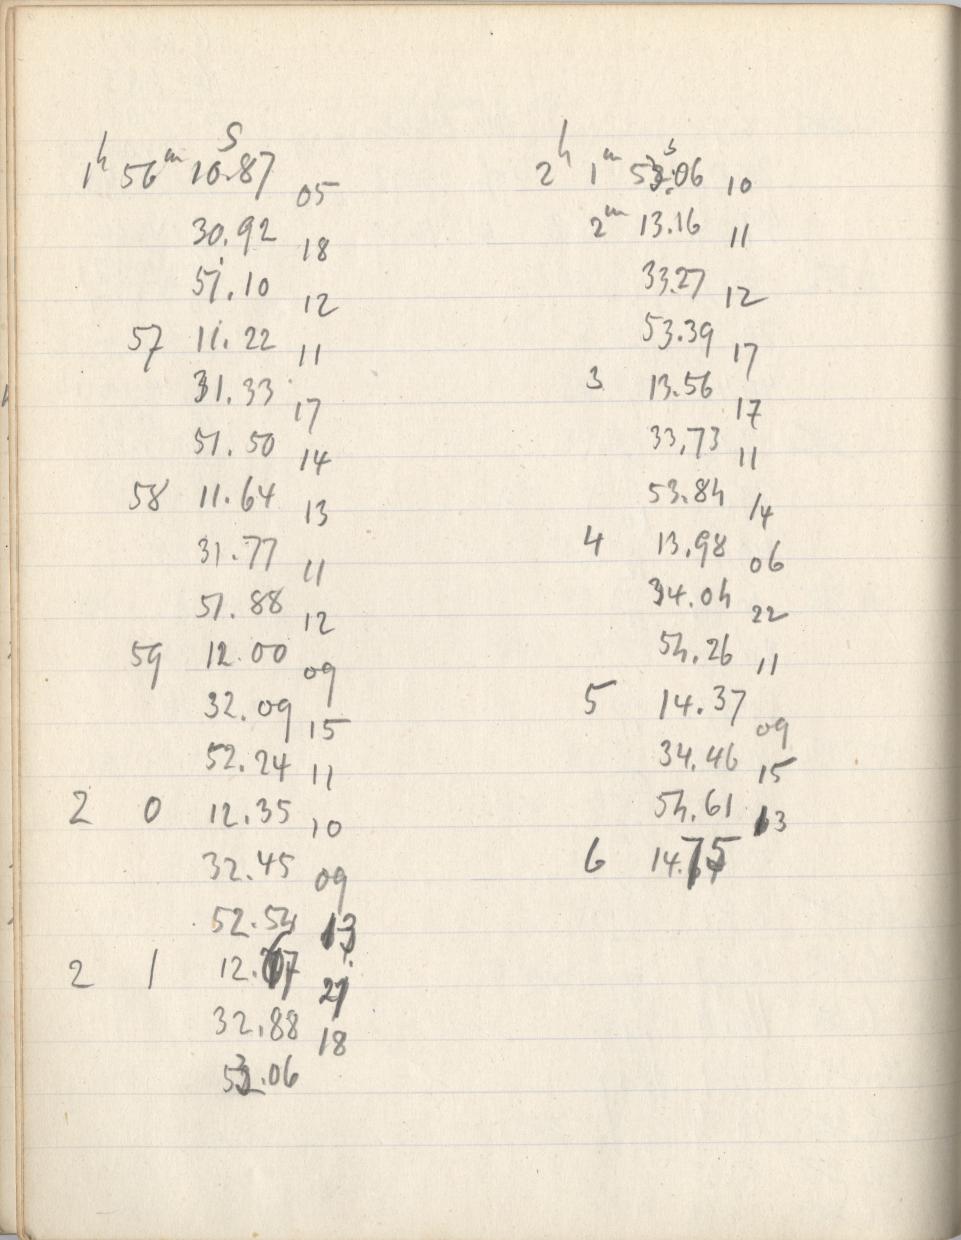 1h 56m 10.87
05
30.92
18
51.10
12
57 11.22
11
31.33
17
51.50
14
58 11.64
13
31.77
11
51.88
12
59 12.00
09
32.09
15
52.24
11
2 0 12.35
10
32.45
09
52.54
13
2 1 12.67
21
32.88
18
53.06
2h 1m 53.06
10
2m 13.16
11
33.27
12
53.39
17
3 13.56
17
33.73
11
53.84
14
4 13.98
06
34.04
22
54.26
11
5 14.37
09
34.46
15
54.61
13
6 14.75